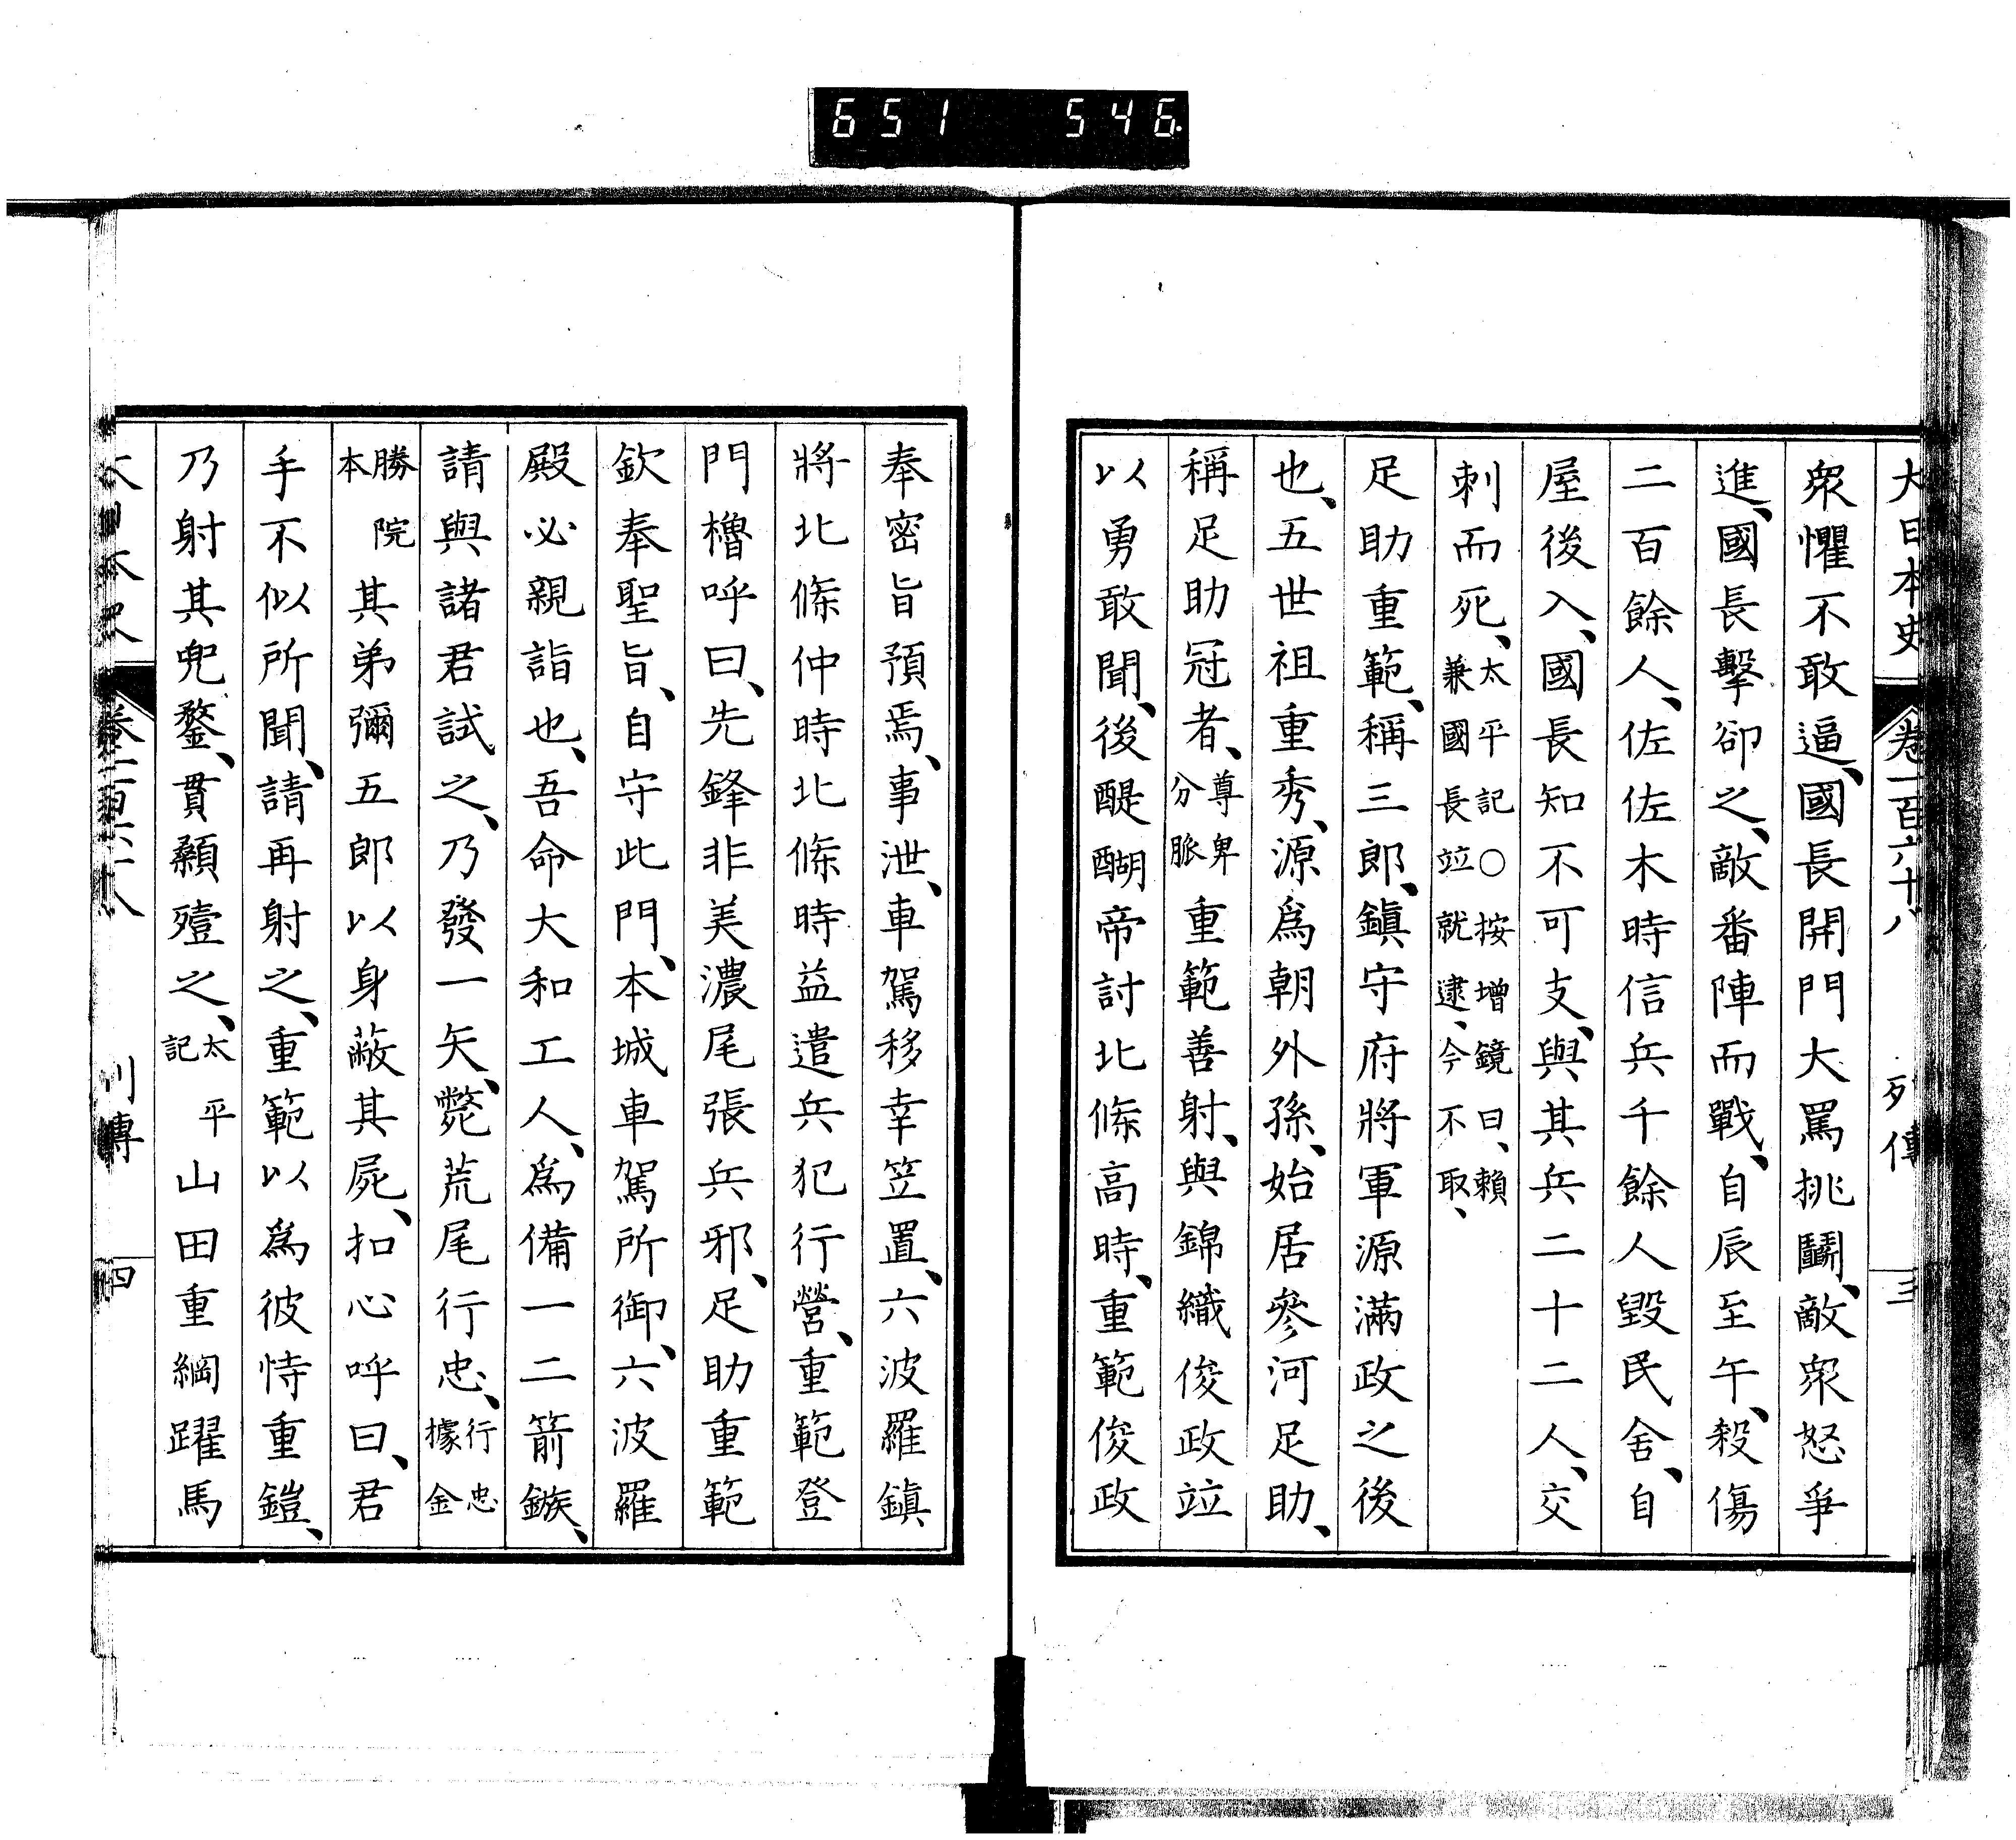 651 546.
大日本史 卷一百六十八 列傳 三
衆懼不敢逼、國長開門大罵挑鬭、敵衆怒爭
進、國長擊卻之、敵番陣而戰、自辰至午、殺傷
二百餘人、佐佐木時信兵千餘人毀民舍、自
屋後入、國長知不可支、與其兵二十二人、交
刺而死、太平記○按增鏡曰、賴兼國長竝就逮、今不取、
足助重範、稱三郎、鎭守府將軍源滿政之後
也、五世祖重秀、源爲朝外孫、始居參河足助、
稱足助冠者、尊卑分脈重範善射、與錦織俊政竝
以勇敢聞、後醍醐帝討北條高時、重範俊政
奉密旨預焉、事泄、車駕移幸笠置、六波羅鎭
將北條仲時北條時益遣兵犯行營、重範登
門櫓呼曰、先鋒非美濃尾張兵邪、足助重範
欽奉聖旨、自守此門、本城車駕所御、六波羅
殿必親詣也、吾命大和工人、爲備一二箭鏃、
請與諸君試之、乃發一矢、斃荒尾行忠、行忠據金
勝院本其弟彌五郎以身蔽其屍、扣心呼曰、君
手不似所聞、請再射之、重範以爲彼恃重鎧、
乃射其兜鍪、貫顙殪之、太平記山田重綱躍馬
列傳 四